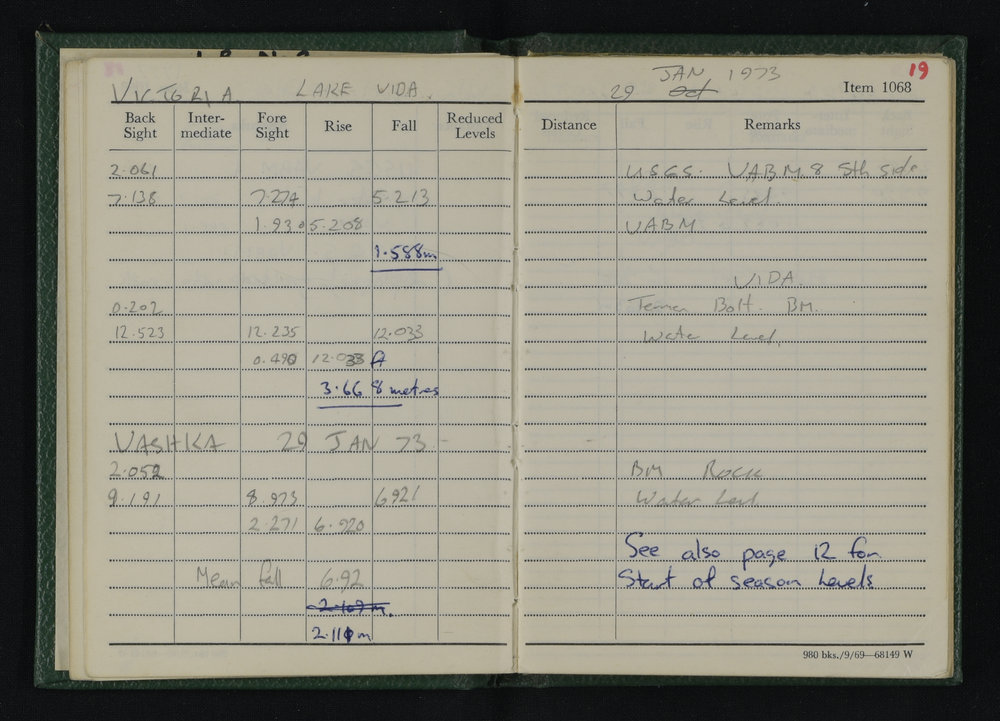 VICTORIA LAKE VIDA.
Back Sight Inter-mediate Fore Sight Rise Fall Reduced Levels
2.061
7.138 7.274 5.213
1.930 5.208
1.588m
0.202
12.523 12.235 12.033
0.490 12.033
3.66 8 metres
VASHKA 29 JAN 73
2.052
9.191 8.973 6921
2.271 6.920
Mean fall 6.92
2.109m.
2.110m
19
JAN 1973
29 Oct Item 1068
Distance Remarks
USGS. VABM.8 Sth side
Water Level.
VABM
VIDA.
Bolt. BM.
Water Level.
BM Rock
Water Level
See also page 12 for
Start of season Levels
980 bks./9/69—68149 W